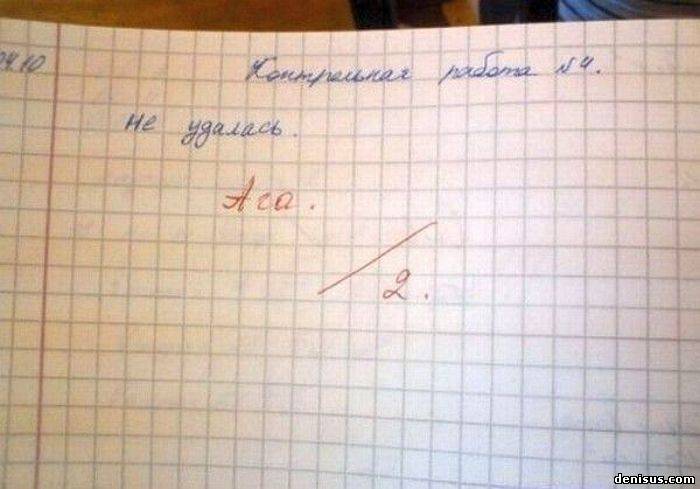 04.10
Контрольная работа №4.
Не удалась.
Ага.
2.
denisus.com